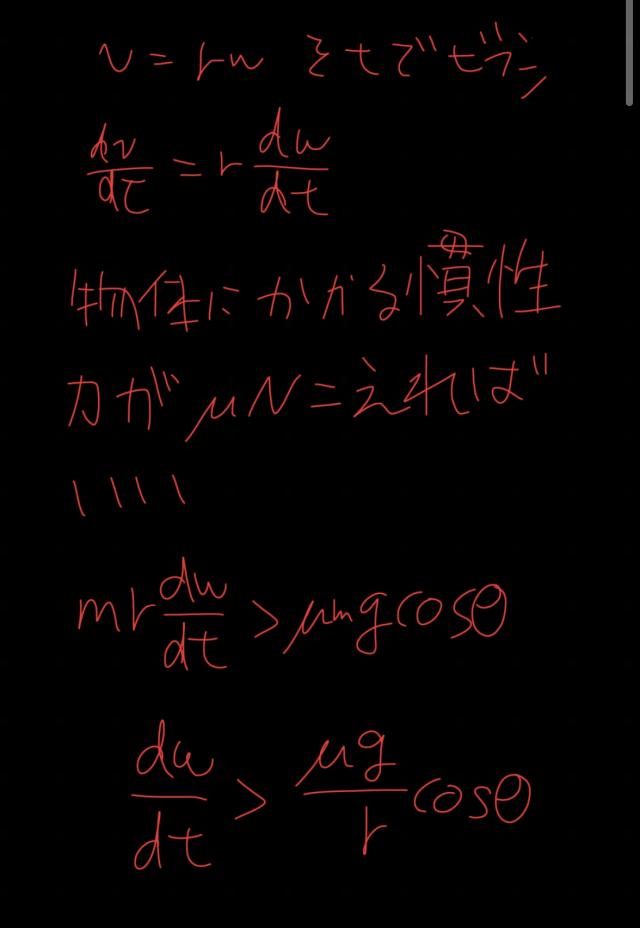 v = rω をtでビブン
dv/dt = r dω/dt
物体にかかる慣性
力がμNこえれば
いい
mr dω/dt > μmg cosθ
dω/dt > μg/r cosθ